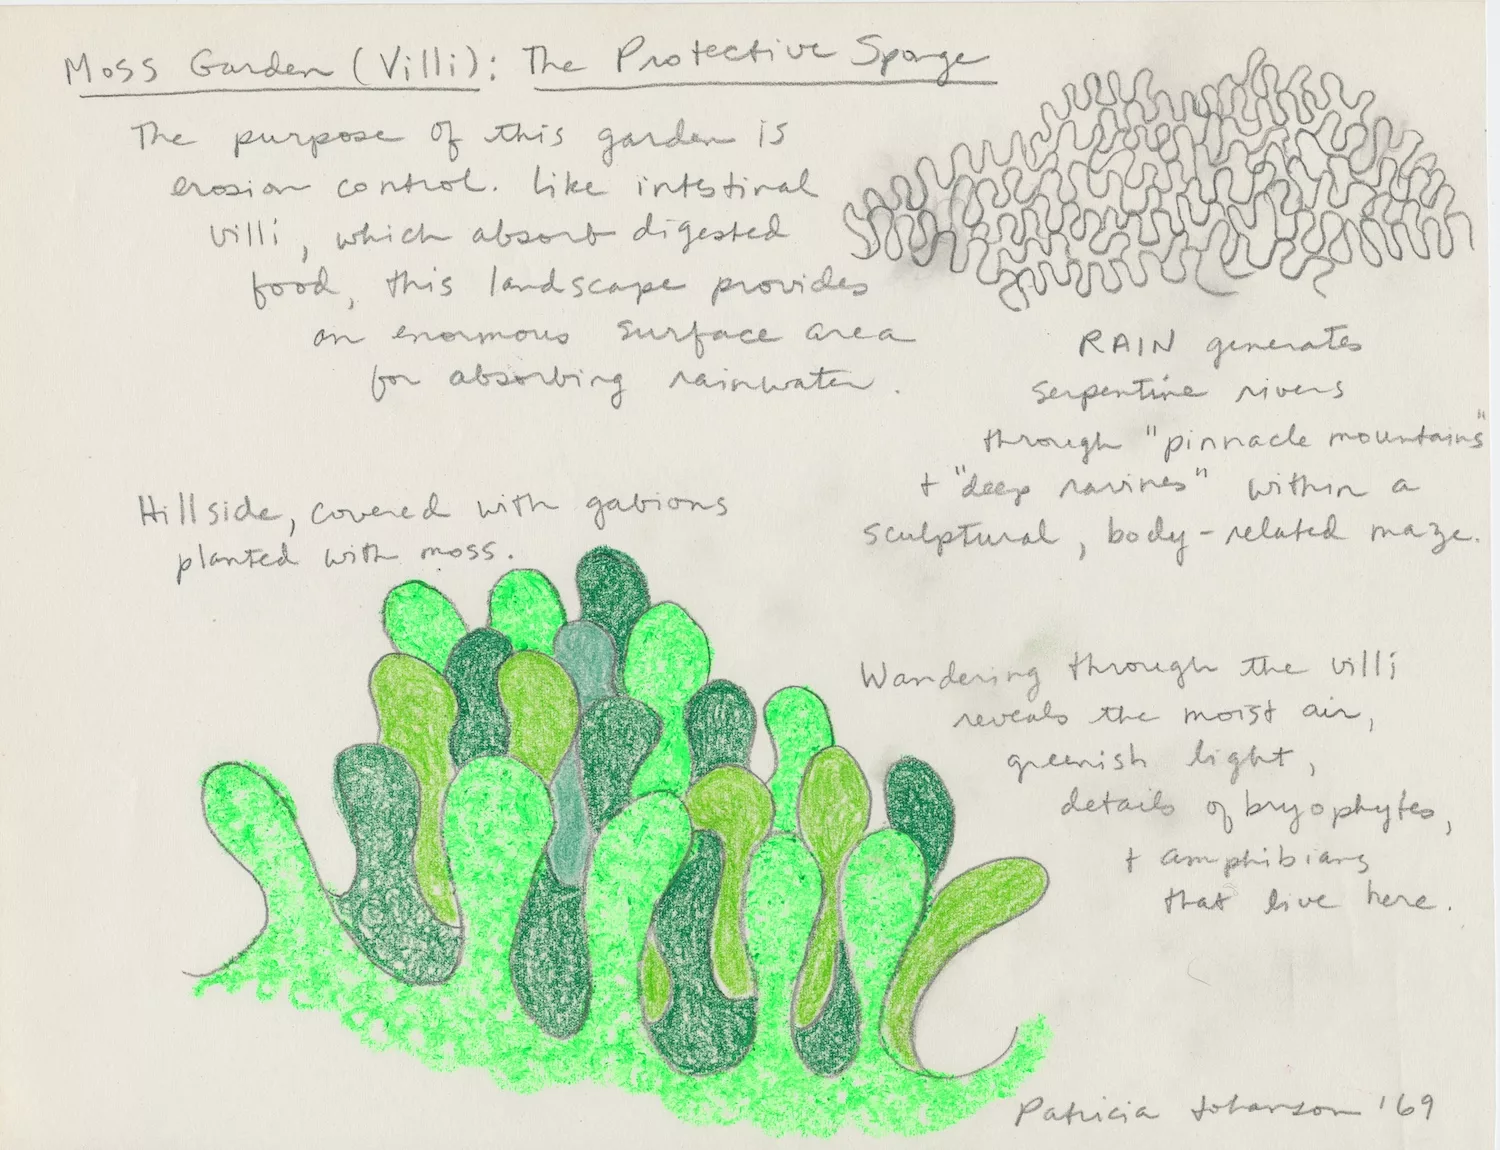 Moss Garden (Villi): The Protective Sponge
The purpose of this garden is
erosion control. Like intestinal
villi, which absorb digested
food, this landscape provides
an enormous surface area
for absorbing rainwater.
RAIN generates
serpentine rivers
through "pinnacle mountains"
+ "deep ravines" within a
sculptural, body-related maze.
Hillside, covered with gabions
planted with moss.
Wandering through the villi
reveals the moist air,
greenish light,
details of bryophytes,
+ amphibians
that live here.
Patricia Johanson '69